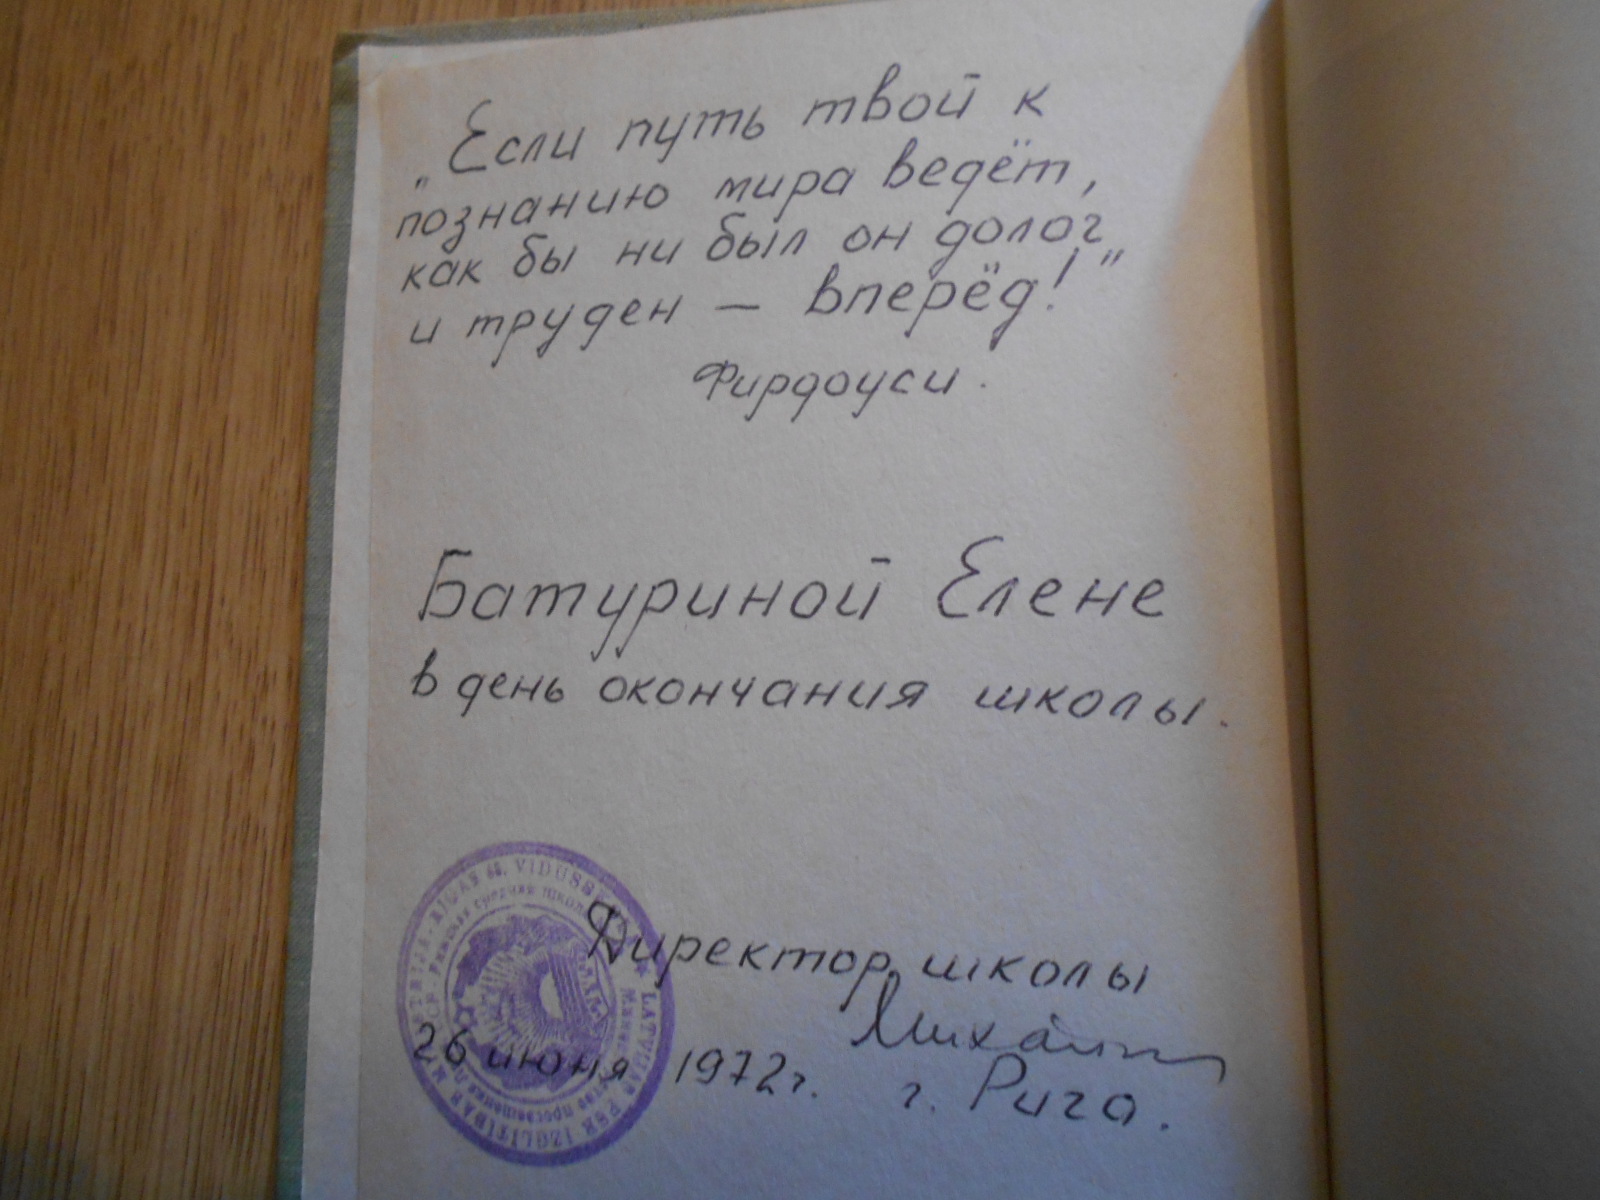 „Если путь твой к
познанию мира ведёт,
как бы ни был он долог
и труден — вперёд!"
Фирдоуси.
Батуриной Елене
в день окончания школы.
Директор школы
26 июня 1972г. г. Рига.
LATVIJAS PSR IZGLĪTĪBAS
RĪGAS VIDUSSKOLA
Рижская средняя школа
просвещения